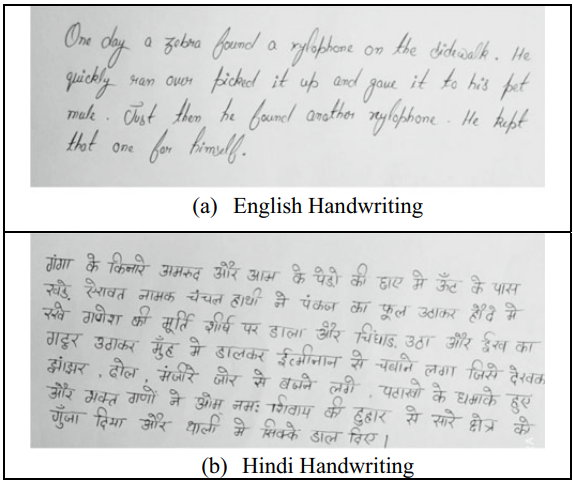 One day a zebra found a xylophone on the sidewalk. He
quickly ran over picked it up and gave it to his pet
mule. Just then he found another xylophone. He kept
that one for himself.
(a) English Handwriting
गंगा के किनारे अमरुद और आम के पेड़ो की छाए मे ऊँट के पास
खड़े, ऐरावत नामक चंचल हाथी ने पंकज का फूल उठाकर हौदे मे
रखे गणेश की मूर्ति शीर्ष पर डाला और चिंघाड़ उठा और ईख का
गट्ठर उठाकर मुँह मे डालकर इत्मीनान से चबाने लगा जिसे देखकर
झांझर, ढोल, मंजीरे जोर से बजने लगे, पटाखो के धमाके हुए
और भक्त गणों ने ओम नमः शिवाय की दुहार से सारे क्षेत्र को
गुँजा दिया और थाली मे सिक्के डाल दिए।
(b) Hindi Handwriting